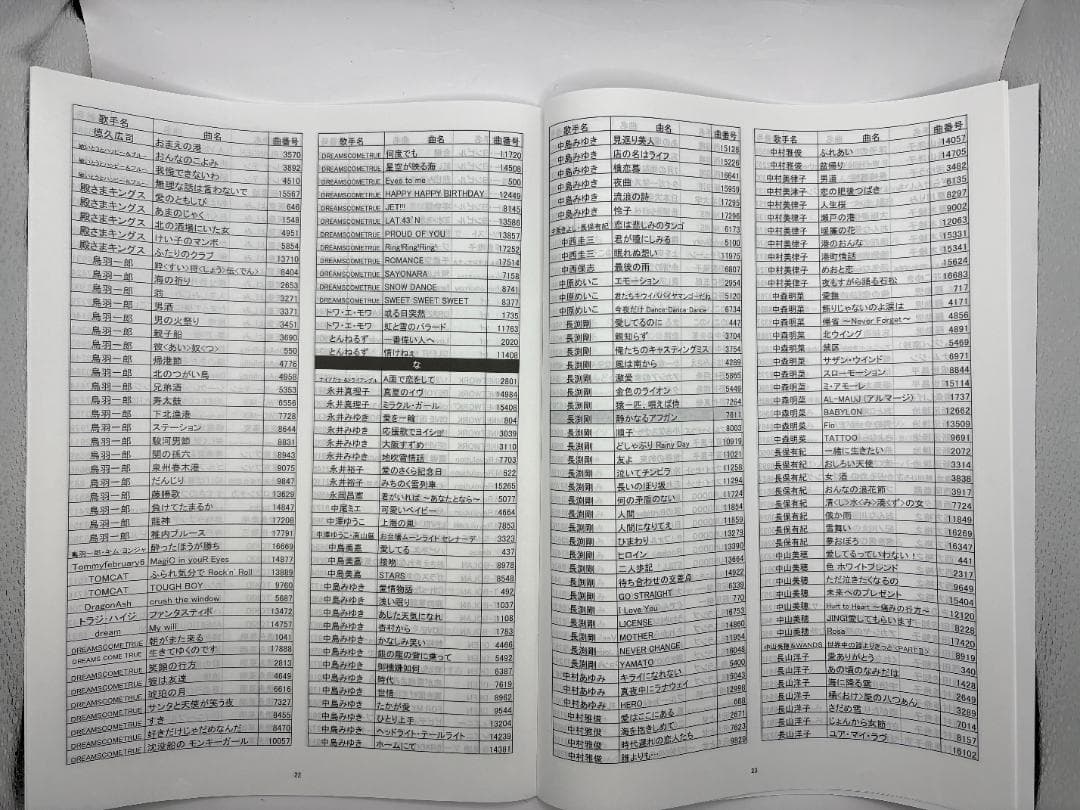 歌手名 曲名 曲番号
徳久広司 おまえの港 3570
おんなのこよみ 3892
我慢できないわ 4510
無理な話は言わないで 15567
殿さまキングス 愛のともしび 646
殿さまキングス あまのじゃく 1548
殿さまキングス 北の酒場にいた女 4951
殿さまキングス けい子のマンボ 5854
殿さまキングス ふたりのクラブ 13710
鳥羽一郎 粋(すい)捋(しょう)伝でん 8404
鳥羽一郎 海の祈り 2653
鳥羽一郎 3271
鳥羽一郎 男酒 3371
鳥羽一郎 男の火祭り 3451
鳥羽一郎 親子船 3690
鳥羽一郎 彼<あい>奴<つ> 550
鳥羽一郎 帰港節 4778
鳥羽一郎 北のつがい鳥 4958
鳥羽一郎 兄弟酒 5363
鳥羽一郎 寿太鼓 6556
鳥羽一郎 下北漁港 7728
鳥羽一郎 ステーション 8644
鳥羽一郎 駿河男節 8831
鳥羽一郎 関の孫六 8943
鳥羽一郎 泉州春木港 9075
鳥羽一郎 だんじり 9847
鳥羽一郎 藤勝歌 13629
鳥羽一郎 負けてたまるか 14847
鳥羽一郎 龍神 17208
鳥羽一郎 稚内ブルース 17791
鳥羽一郎・キム・ヨンジャ 酔ったほうが勝ち 16669
Tommyfebruary6 MagiC in youR Eyes 14877
TOMCAT ふられ気分で Rock'n' Roll 13889
TOMCAT TOUGH BOY 9760
DragonAsh crush the window 5687
トラジ・ハイジ ファンタスティポ 13472
dream My will 14757
DREAMSCOMETRUE 朝がまた来る 1041
DREAMS COMETRUE 生きてゆくのです 17888
DREAMSCOMETRUE 笑顔の行方 2813
DREAMSCOMETRUE 皆は友達 4649
DREAMSCOMETRUE 琥珀の月 6616
DREAMSCOMETRUE サンタと天使が笑う夜 7327
DREAMSCOMETRUE すき 8455
DREAMSCOMETRUE 好きだけじゃだめなんだ 8470
DREAMSCOMETRUE 沈没船の モンキーガール 10057
歌手名 曲名 曲番号
DREAMSCOMETRUE 何度でも 11720
DREAMSCOMETRUE 星空が映る海 14508
DREAMSCOMETRUE Eyes to me 500
DREAMSCOMETRUE HAPPY HAPPY BIRTHDAY 12449
DREAMSCOMETRUE JET!!! 8145
DREAMSCOMETRUE LAT.43°N 13586
DREAMSCOMETRUE PROUD OF YOU 13857
DREAMSCOMETRUE Ring!Ring!Ring! 17252
DREAMSCOMETRUE ROMANCE 17514
DREAMSCOMETRUE SAYONARA 7158
DREAMSCOMETRUE SNOW DANCE 8741
DREAMSCOMETRUE SWEET SWEET SWEET 8377
トワ・エ・モワ 或る日突然 1735
トワ・エ・モワ 虹と雪のバラード 11763
とんねるず 一番偉い人へ 2020
とんねるず 情けねぇ 11408
な
A面で恋をして 2801
永井真理子 真夏のイヴ 14984
永井真理子 ミラクル・ガール 15408
永井みゆき 愛を一輪 804
永井みゆき 応援歌でヨイショ 3039
永井みゆき 大阪すずめ 3110
永井みゆき 地吹雪情話 7703
永井裕子 愛のさくら記念日 822
永井裕子 みちのく雪列車 15265
永岡昌憲 君がいれば ～あなたとなら～ 5077
中尾ミエ 可愛いベイビー 4664
中澤ゆうこ 上海の風 7853
中澤ゆうこ・高山厳 お台場ムーンライト セレナーデ 3323
中島美嘉 愛してる 437
中島美嘉 接吻 8978
中島美嘉 STARS 8548
中島みゆき 愛情物語 492
中島みゆき 浅い眠り 1037
中島みゆき あした天気になれ 1108
中島みゆき 杏村から 1783
中島みゆき かなしみ笑い 4466
中島みゆき 銀の龍の背に乗って 5492
中島みゆき 御機嫌如何 6387
中島みゆき 時代 7619
中島みゆき 世情 8962
中島みゆき たかが愛 9544
中島みゆき ひとり上手 13204
中島みゆき ヘッドライト・テールライト 14239
中島みゆき ホームにて 14381
22
歌手名 曲名 曲番号
中島みゆき 見返り美人 15128
中島みゆき 店の名はライフ 15226
中島みゆき 慟恋慕 16641
中島みゆき 夜曲 15959
中島みゆき 流浪の詩 17295
中島みゆき 怜子 17296
恋は悲しみのタンゴ 6173
中西圭三 君が瞳にしみる 5100
中西圭三 眠れぬ想い
中西保志 最後の雨 6807
中原めいこ エモーション 2954
中原めいこ 君たちキウイ・パパイヤ・マンゴーだね 5120
中原めいこ 今夜だけ Dance・Dance・Dance 6734
長渕剛 愛してるのに 447
長渕剛 親知らず 3704
長渕剛 俺たちのキャスティングミス 3754
長渕剛 風は南から 4389
長渕剛 激愛 5865
長渕剛 金色のライオン 5449
長渕剛 猿一匹、唄えば侍 7264
長渕剛 静かなるアフガン 7811
長渕剛 順子 8003
長渕剛 どしゃぶり Rainy Day 10919
長渕剛 友よ 11021
長渕剛 泣いてチンピラ 11258
長渕剛 長いのぼり坂 11294
長渕剛 何の矛盾のない 11724
長渕剛 人間 11854
長渕剛 人間になりてえ 11859
長渕剛 ひまわり 13279
長渕剛 ヒロイン 13390
長渕剛 二人歩記 13664
長渕剛 待ち合わせの交差点 14922
長渕剛 GO STRAIGHT 6339
長渕剛 I Love You 770
長渕剛 LICENSE 16753
長渕剛 MOTHER 14860
長渕剛 NEVER CHANGE 11954
長渕剛 YAMATO 16048
中村あゆみ キライになれない 5400
中村あゆみ 真夜中にランナウェイ 15043
中村あゆみ HERO 12998
中村雅俊 愛はここにある 668
中村雅俊 海を抱きしめて 2671
中村雅俊 時代遅れの恋人たち 7623
中村雅俊 誰よりも… 9829
歌手名 曲名 曲番号
中村雅俊 ふれあい 14057
中村雅俊 盆帰り 14705
中村美律子 男道 3482
中村美津子 恋の肥後つばき 6135
中村美律子 人生桜 8297
中村美律子 瀬戸の港 9002
中村美律子 暖簾の花 12063
中村美律子 港のおんな 15331
中村美律子 港町情話 15341
中村美律子 めおと恋 15624
中村美律子 夜もすがら踊る石松 16683
中森明菜 愛撫 717
中森明菜 飾りじゃないのよ涙は 4171
中森明菜 帰省 ～Never Forget～ 4856
中森明菜 北ウイング 4891
中森明菜 禁区 5469
中森明菜 サザン・ウインド 6971
中森明菜 スローモーション 8844
中森明菜 ミ・アモーレ 15114
中森明菜 AL-MAUJ(アルマージ) 1737
中森明菜 BABYLON 12662
中森明菜 Fin 13509
中森明菜 TATTOO 9691
長保有紀 一緒に生きたい 2072
長保有紀 おしろい天使 3314
長保有紀 女・酒 3838
長保有紀 おんなの浪花節 3917
長保有紀 7724
長保有紀 俄か雨 11849
長保有紀 雪舞い 16269
長保有紀 夢おぼろ 16347
中山美穂 愛してるっていわない! 441
中山美穂 色・ホワイトブレンド 2317
中山美穂 ただ泣きたくなるの 9649
中山美穂 未来へのプレゼント 15404
中山美穂 Hurt to Heart ～痛みの行方～ 12120
中山美穂 JINGI愛してもらいます 8228
中山美穂 Rosa 17420
中山美穂&WANDS 世界中の誰よりきっと<PARTⅡ> 8919
長山洋子 愛ありがとう 340
長山洋子 あの頃のなみだは 1428
長山洋子 海に降る雪 2649
長山洋子 3289
長山洋子 さだめ雪 7014
長山洋子 じょんから女節 8157
長山洋子 ユア・マイ・ラヴ 16102
23